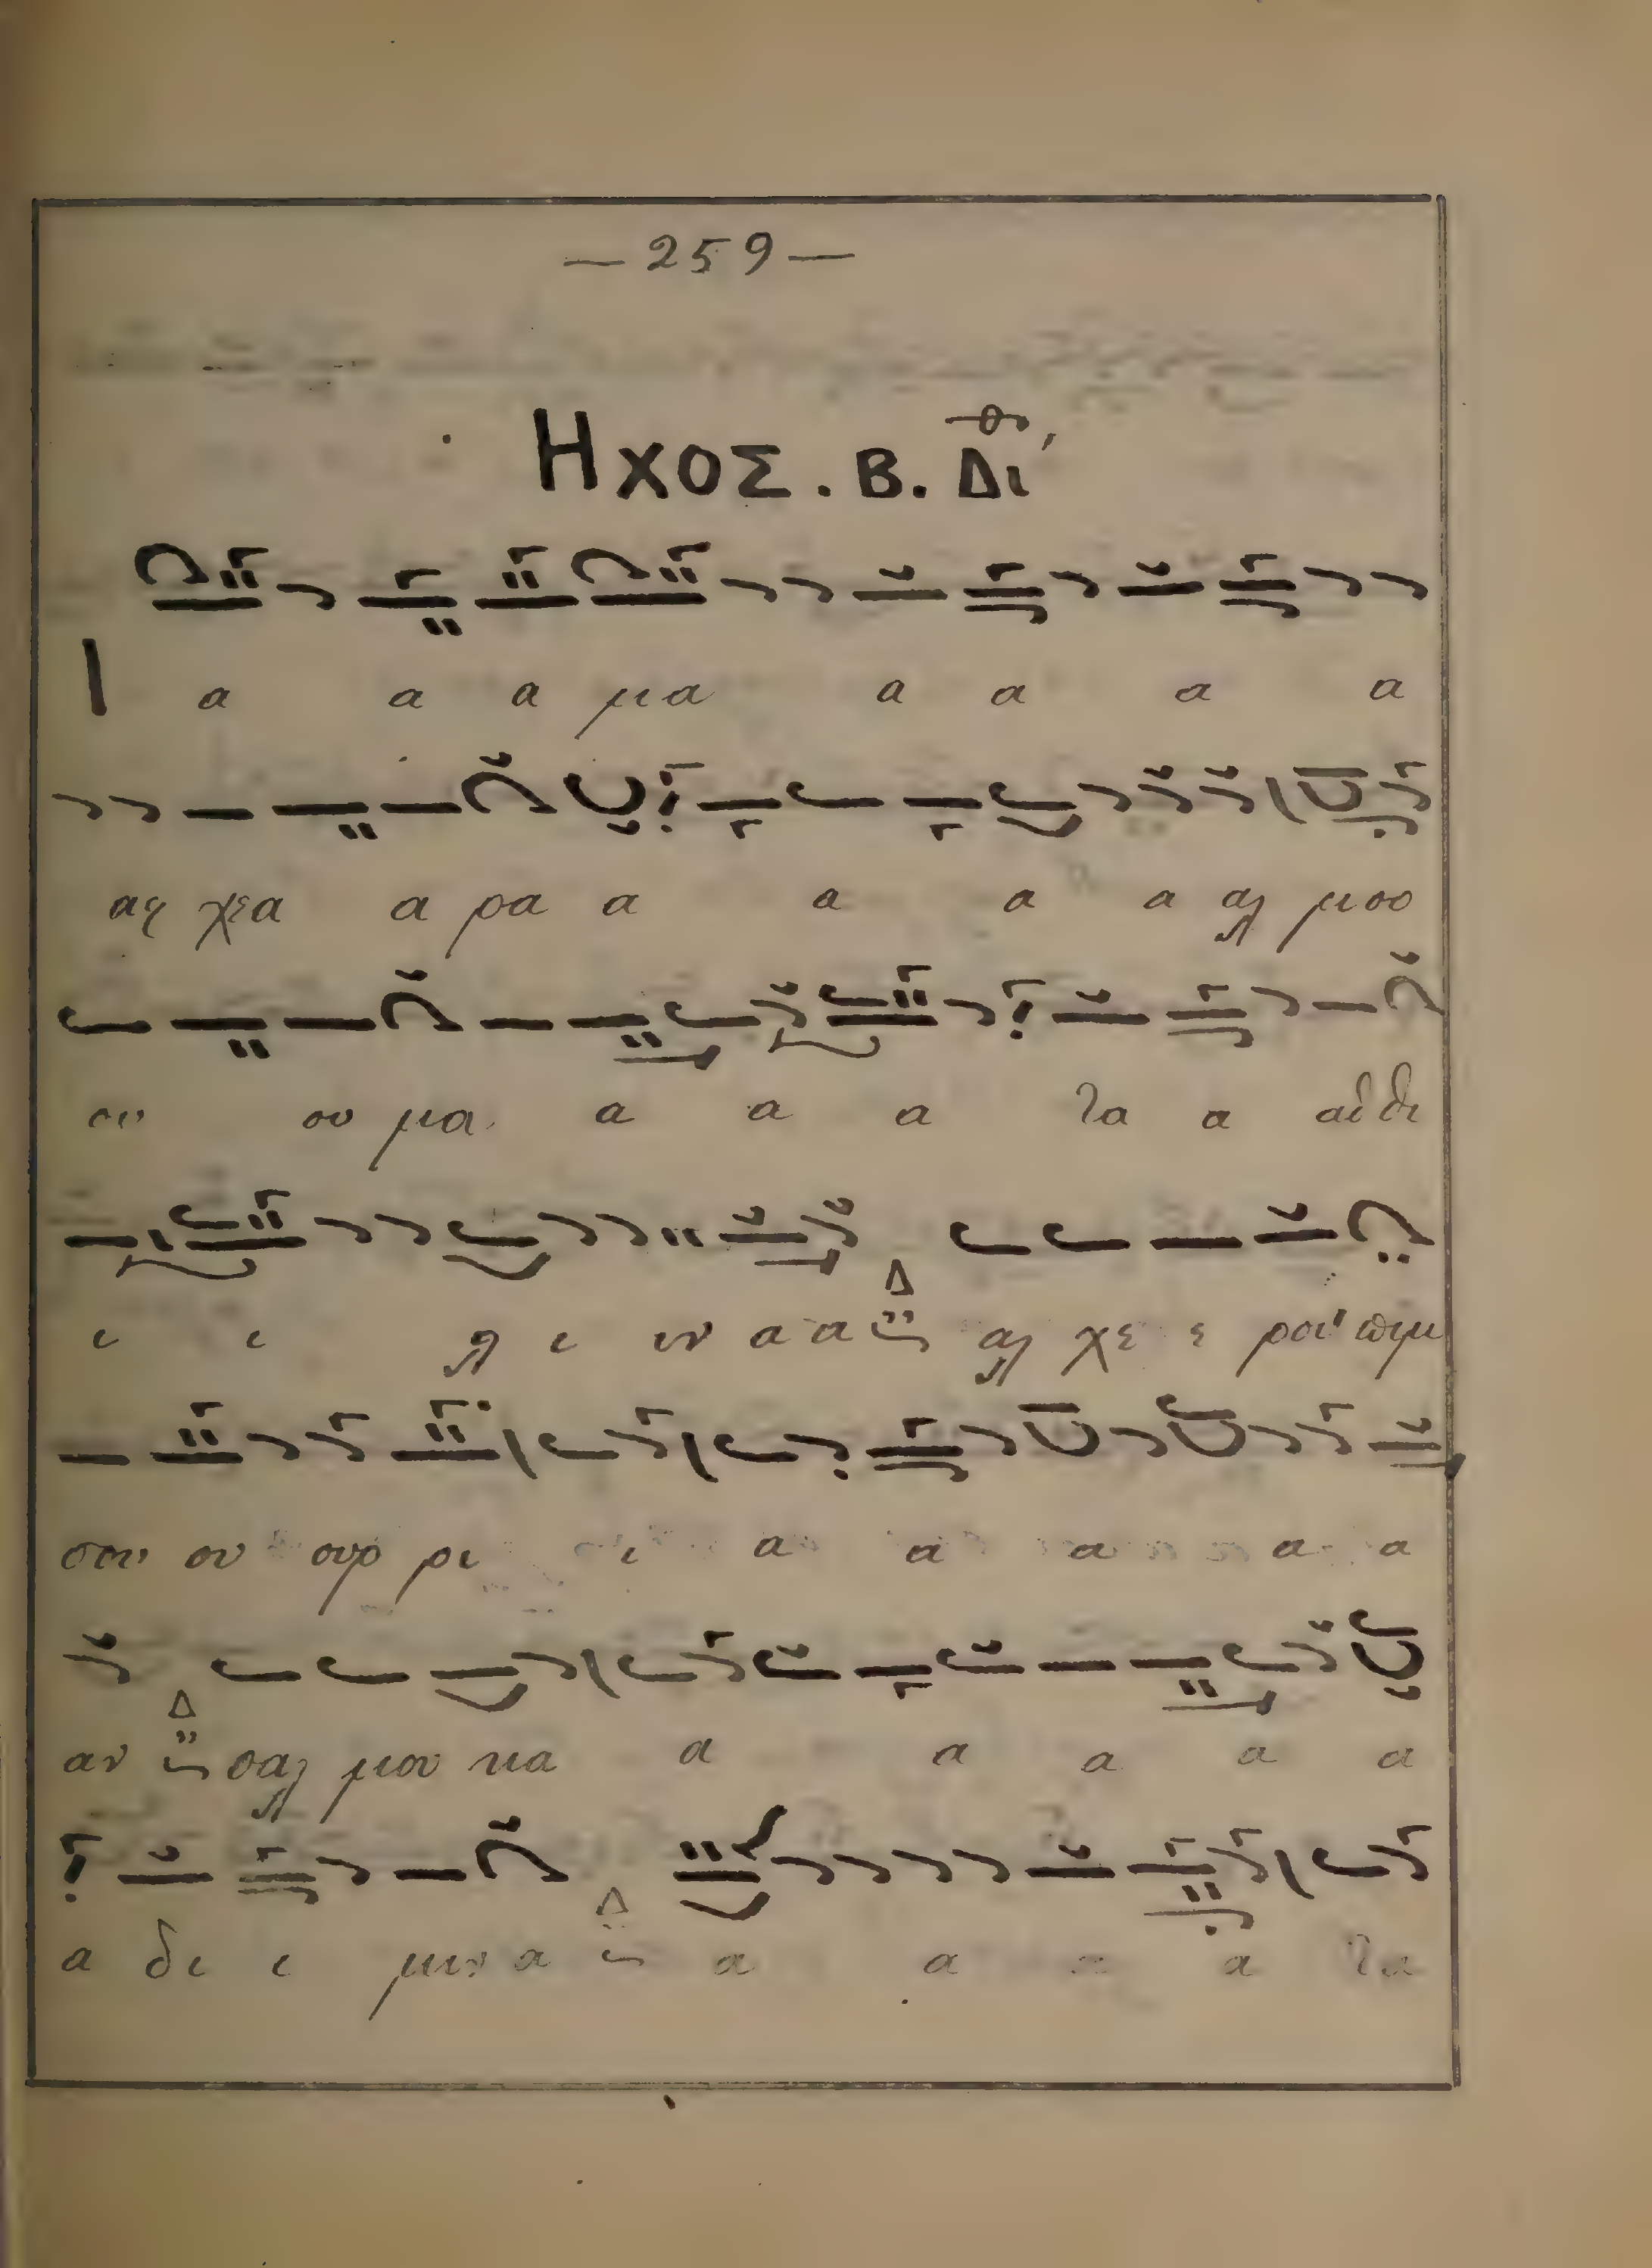 — 259 —
Ηχος. Β. Δι
Ι α α α μα α α α α
αγ χεα α ρα α α α α αλ μου
ου ου μα α α α τα α αδ δι
ι ι λ ι ιν α α Δ αλ χε ε ρου πιμ
σου ου ουρ ρι ι α α α α α
αν Δ σαλ μου κα α α α α α
α δι ι μιν α Δ α α α α τα